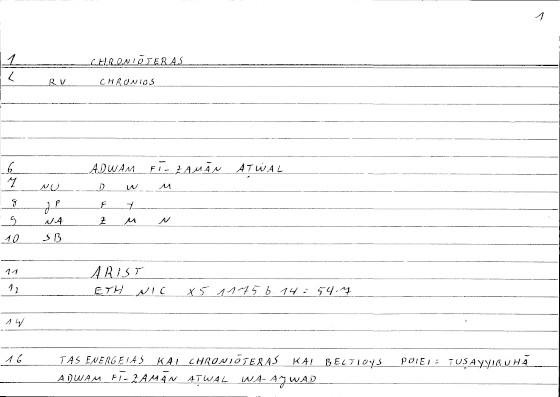 1
1 CHRONIŌTERAS
L RV CHRONIOS
6 ADWAM FĪ-ZAMĀN AṬWAL
7 NU D W M
8 JP F Y
9 NA Z M N
10 SB
11 ARIST
12 ETH NIC X5 1175 b 14 = 54.7
14
16 TAS ENERGEIAS KAI CHRONIŌTERAS KAI BELTIOYS POIEI = TUṢAYYIRUHĀ
ADWAM FĪ-ZAMĀN AṬWAL WA-AǦWAD